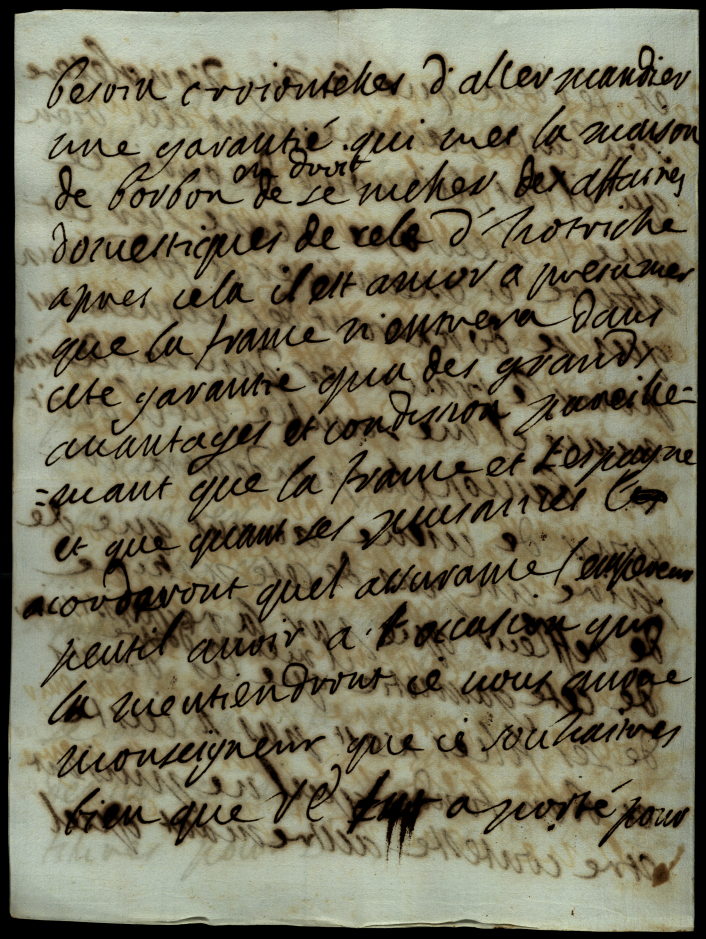 besoin croiontelles d'aller mandier
une garantié qui met la maison
de borbon en droit de se meller des affaires
domestiques de cele d'hotriche
apres cela il est ancor a presumer
que la france n'entrera dans
cete garantie qua des grands
avantages et condission pareille=
=mant que la france et l'espagne
et que quant ses puisances la
acorderont quel assurance l'empereur
peutil avoir a l'occasion quil
la mentiendront ie vous avoue
monseigneur que ie souhaiterés
bien que V E fut a porté pour